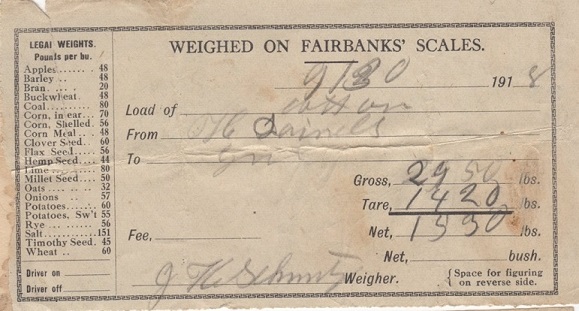 LEGAL WEIGHTS.
Pounds per bu.
Apples....... 48
Barley .. 48
Bran .... 20
Buckwheat. 48
Coal ..... 80
Corn, in ear... 70
Corn, Shelled. 56
Corn Meal .. 48
Clover Seed.. 60
Flax Seed .... 56
Hemp Seed .... 44
Lime ..... 80
Millet Seed... 50
Oats .... ... 32
Onions .. 57
Potatoes..... 60
Potatoes, Sw't 55
Rye ....... 56
Salt...........151
Timothy Seed. 45
Wheat .. 60
Driver on
Driver off
WEIGHED ON FAIRBANKS' SCALES.
9/30 1918
Load of cotton
From H Daniels
To
Gross, 2950 lbs.
Tare, 1420 lbs.
Fee, Net, 1530 lbs.
Net, bush.
Weigher. {Space for figuring
on reverse side.